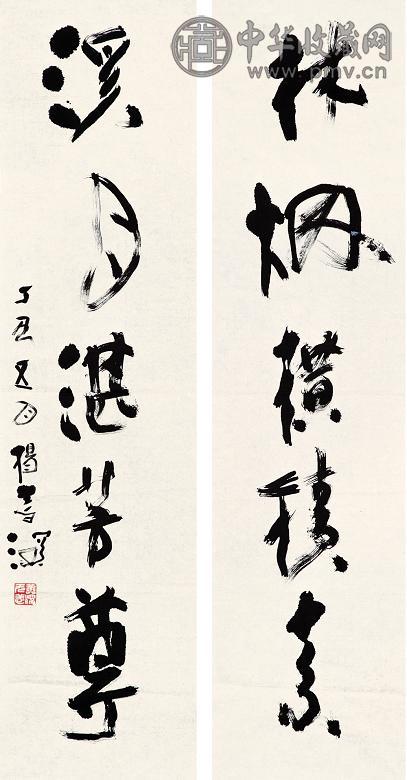 中华收藏网
www.pmv.cn
林烟橫積素
溪月湛芳尊
丁丑五月楊善深